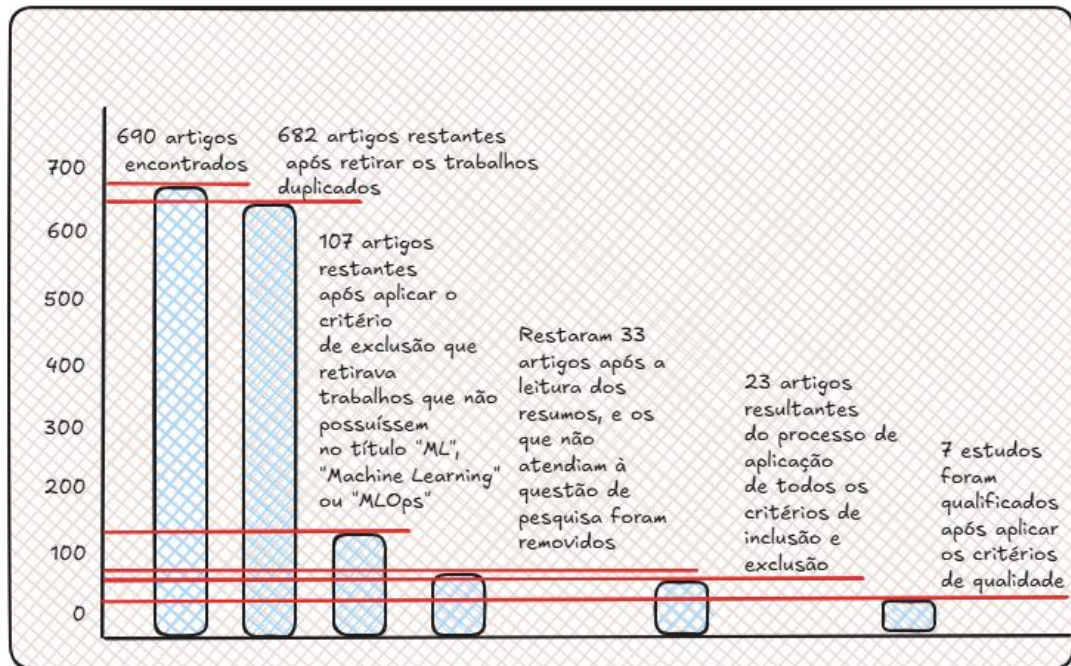 700
600
500
400
300
200
100
0
690 artigos
encontrados
682 artigos restantes
após retirar os trabalhos
duplicados
107 artigos
restantes
após aplicar o
critério
de exclusão que
retirava
trabalhos que não
possuíssem
no título "ML",
"Machine Learning"
ou "MLOps"
Restaram 33
artigos após a
leitura dos
resumos, e os
que não
atendiam à
questão de
pesquisa foram
removidos
23 artigos
resultantes
do processo de
aplicação
de todos os
critérios de
inclusão e
exclusão
7 estudos
foram
qualificados
após aplicar
os critérios
de qualidade